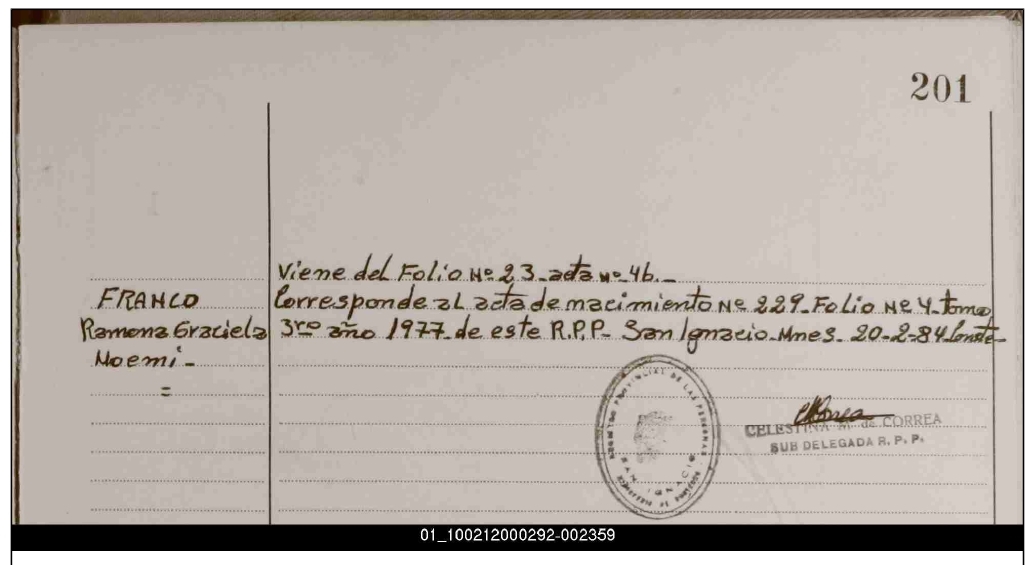 201
Viene del Folio Nº 23 - acta Nº 46.-
FRANCO
Ramona Graciela
Noemi -
=
Corresponde al acta de nacimiento Nº 229. Folio Nº 4. tomo
3ro año 1977 de este R.P.P- San Ignacio. Mnes. 20-2-84 Conste-
REGISTRO PROVINCIAL DE LAS PERSONAS
SAN IGNACIO
CELESTINA M. de CORREA
SUB DELEGADA R. P. P.
01_100212000292-002359